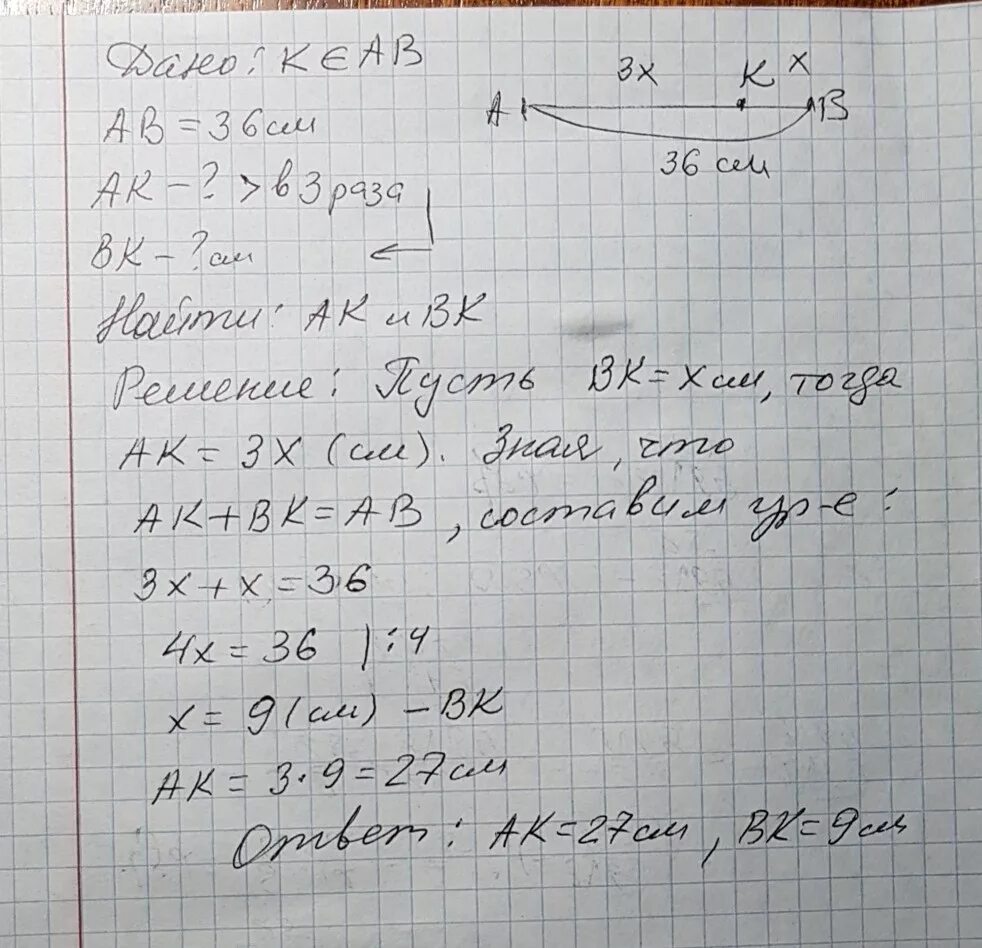 Дано: K ∈ AB
AB = 36 см
AK - ? > в 3 раза
BK - ? см
3x K x
A B
36 см
Найти: AK и BK
Решение: Пусть BK = x см, тогда
AK = 3x (см). Зная, что
AK + BK = AB, составим ур-е:
3x + x = 36
4x = 36 | : 4
x = 9 (см) - BK
AK = 3 · 9 = 27 см
Ответ: AK = 27 см, BK = 9 см